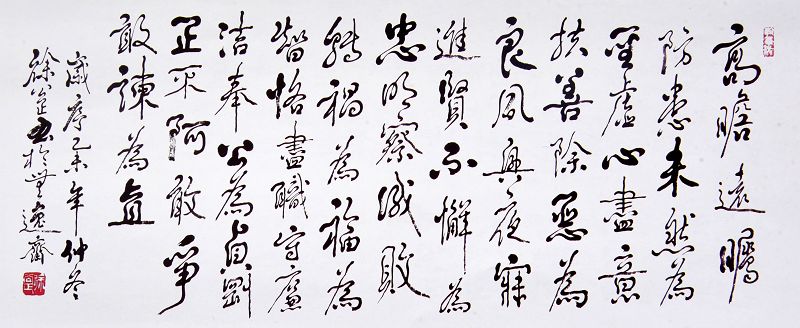 高瞻遠矚
防患未然為
聖虛心盡意
扶善除惡為
良夙興夜寐
進賢不懈為
忠明察成敗
轉禍為福為
智恪盡職守廉
潔奉公為貞剛
正不阿敢爭
敢諫為直
歲序乙未年仲冬
徐書於無逸齋